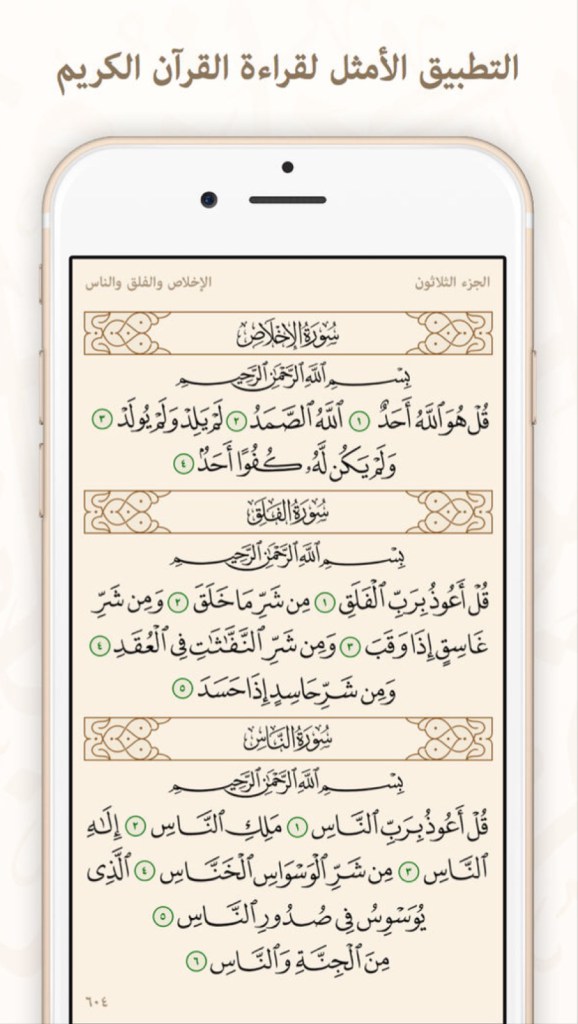 التطبيق الأمثل لقراءة القرآن الكريم
الجزء الثلاثون
الإخلاص والفلق والناس
سُورَةُ الإِخْلَاصِ
بِسْمِ ٱللَّهِ ٱلرَّحْمَٰنِ ٱلرَّحِيمِ
قُلْ هُوَ ٱللَّهُ أَحَدٌ ١ ٱللَّهُ ٱلصَّمَدُ ٢ لَمْ يَلِدْ وَلَمْ يُولَدْ ٣
وَلَمْ يَكُن لَّهُۥ كُفُوًا أَحَدٌۢ ٤
سُورَةُ الفَلَقِ
بِسْمِ ٱللَّهِ ٱلرَّحْمَٰنِ ٱلرَّحِيمِ
قُلْ أَعُوذُ بِرَبِّ ٱلْفَلَقِ ١ مِن شَرِّ مَا خَلَقَ ٢ وَمِن شَرِّ
غَاسِقٍ إِذَا وَقَبَ ٣ وَمِن شَرِّ ٱلنَّفَّٰثَٰتِ فِى ٱلْعُقَدِ ٤
وَمِن شَرِّ حَاسِدٍ إِذَا حَسَدَ ٥
سُورَةُ النَّاسِ
بِسْمِ ٱللَّهِ ٱلرَّحْمَٰنِ ٱلرَّحِيمِ
قُلْ أَعُوذُ بِرَبِّ ٱلنَّاسِ ١ مَلِكِ ٱلنَّاسِ ٢ إِلَٰهِ
ٱلنَّاسِ ٣ مِن شَرِّ ٱلْوَسْوَاسِ ٱلْخَنَّاسِ ٤ ٱلَّذِى
يُوَسْوِسُ فِى صُدُورِ ٱلنَّاسِ ٥
مِنَ ٱلْجِنَّةِ وَٱلنَّاسِ ٦
٦٠٤